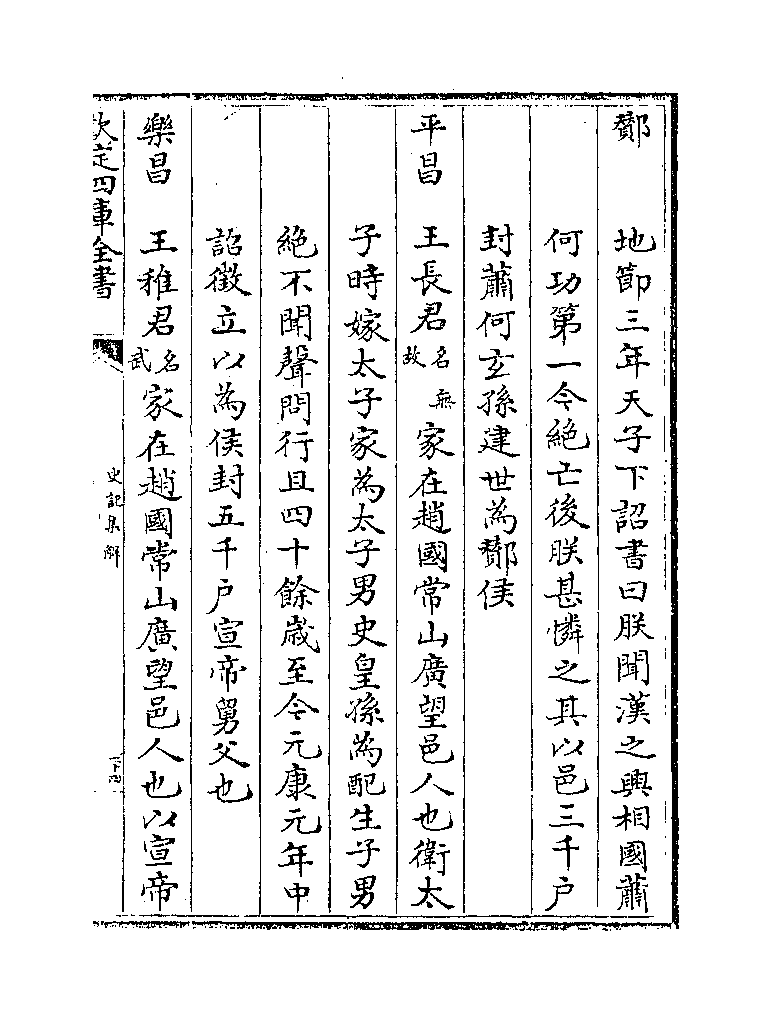 酇　地節三年天子下詔書曰朕聞漢之興相國蕭
何功第一今絶亡後朕甚憐之其以邑三千户
封蕭何玄孫建世為酇侯
平昌　王長君名無故家在趙國常山廣望邑人也衛太
子時嫁太子家為太子男史皇孫為配生子男
絶不聞聲問行且四十餘歳至今元康元年中
詔徵立以為侯封五千户宣帝舅父也
樂昌　王稚君名武家在趙國常山廣望邑人也以宣帝
欽定四庫全書
史記集解